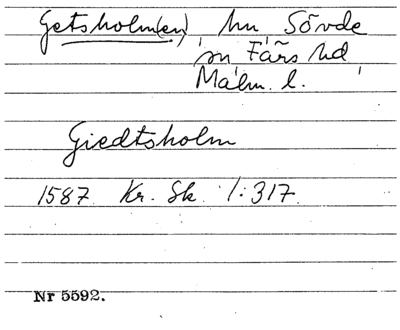 Getsholm(en), hu Sövde
sn Färs hd
Malm. l.
Giedtsholm
1587 Kr. Sk. 1:317.
Nr 5592.